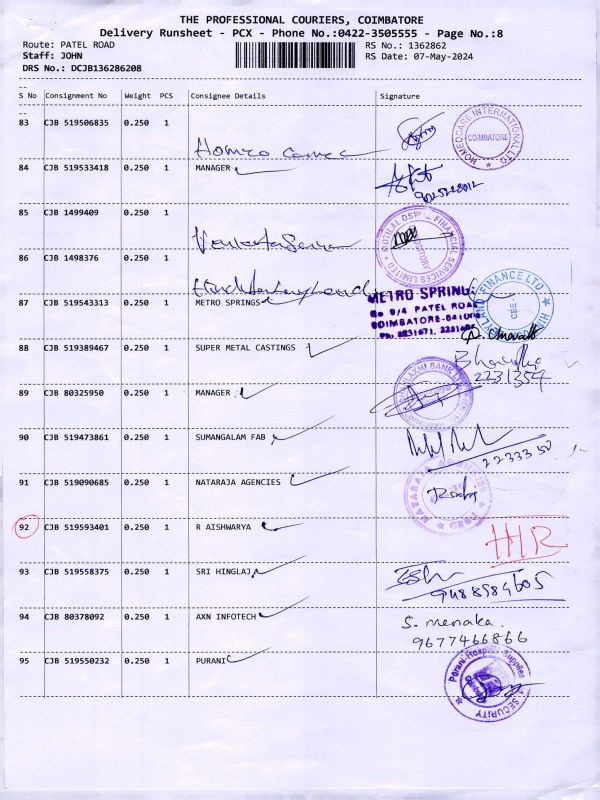 THE PROFESSIONAL COURIERS, COIMBATORE
Delivery Runsheet - PCX - Phone No.:0422-3505555 - Page No.:8
Route: PATEL ROAD RS No.: 1362862
Staff: JOHN RS Date: 07-May-2024
DRS No.: DCJB136286208
S No Consignment No Weight PCS Consignee Details Signature
83 CJB 519506835 0.250 1
HOMEOCARE INTERNATIONAL LTD COIMBATORE
84 CJB 519533418 0.250 1 MANAGER
85 CJB 1499409 0.250 1
MOTILAL OSWAL FINANCIAL SERVICES LIMITED
86 CJB 1498376 0.250 1
FINANCE LTD
87 CJB 519543313 0.250 1 METRO SPRINGS
METRO SPRING
No 9/4 PATEL ROAD
COIMBATORE-641
88 CJB 519389467 0.250 1 SUPER METAL CASTINGS
2231354
89 CJB 80325950 0.250 1 MANAGER
90 CJB 519473861 0.250 1 SUMANGALAM FAB
91 CJB 519090685 0.250 1 NATARAJA AGENCIES
92 CJB 519593401 0.250 1 R AISHWARYA
93 CJB 519558375 0.250 1 SRI HINGLAJ
94 CJB 80378092 0.250 1 AXN INFOTECH
S. menaka.
9677466866
95 CJB 519550232 0.250 1 PURANI
Purani Hospital Supplies
SECURITY